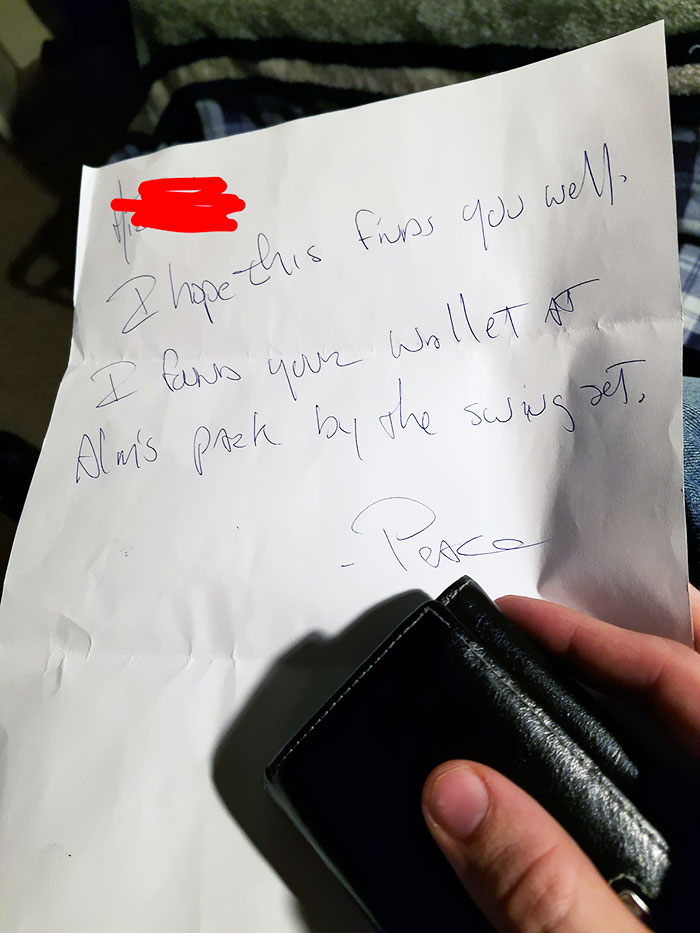 Hi
I hope this finds you well.
I found your wallet at
park by the swing set.
- Peace